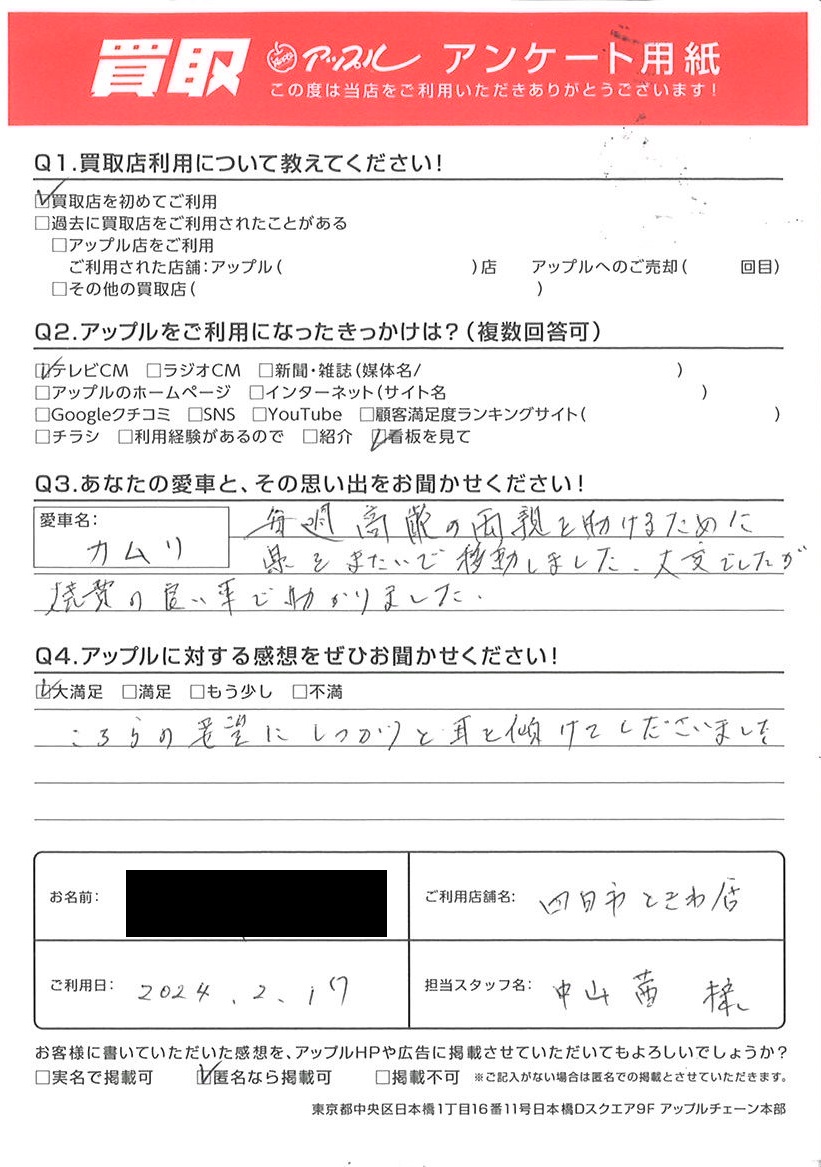 買取 アップル アンケート用紙
この度は当店をご利用いただきありがとうございます!
Q1.買取店利用について教えてください!
☑買取店を初めてご利用
□過去に買取店をご利用されたことがある
□アップル店をご利用
ご利用された店舗:アップル( )店 アップルへのご売却( 回目)
□その他の買取店( )
Q2.アップルをご利用になったきっかけは?(複数回答可)
☑テレビCM □ラジオCM □新聞・雑誌(媒体名/ )
□アップルのホームページ □インターネット(サイト名 )
□Googleクチコミ □SNS □YouTube □顧客満足度ランキングサイト( )
□チラシ □利用経験があるので □紹介 ☑看板を見て
Q3.あなたの愛車と、その思い出をお聞かせください!
愛車名:
カムリ
毎週高齢の両親を助けるために
県をまたいで移動しました。大変でしたが
燃費の良い車で助かりました。
Q4.アップルに対する感想をぜひお聞かせください!
☑大満足 □満足 □もう少し □不満
こちらの希望にしっかりと耳を傾けてくださいました
お名前:
ご利用店舗名: 四日市ときわ店
ご利用日: 2024.2.17
担当スタッフ名: 中山 茜 様
お客様に書いていただいた感想を、アップルHPや広告に掲載させていただいてもよろしいでしょうか?
□実名で掲載可 ☑匿名なら掲載可 □掲載不可 ※ご記入がない場合は匿名での掲載とさせていただきます。
東京都中央区日本橋1丁目16番11号日本橋Dスクエア9F アップルチェーン本部